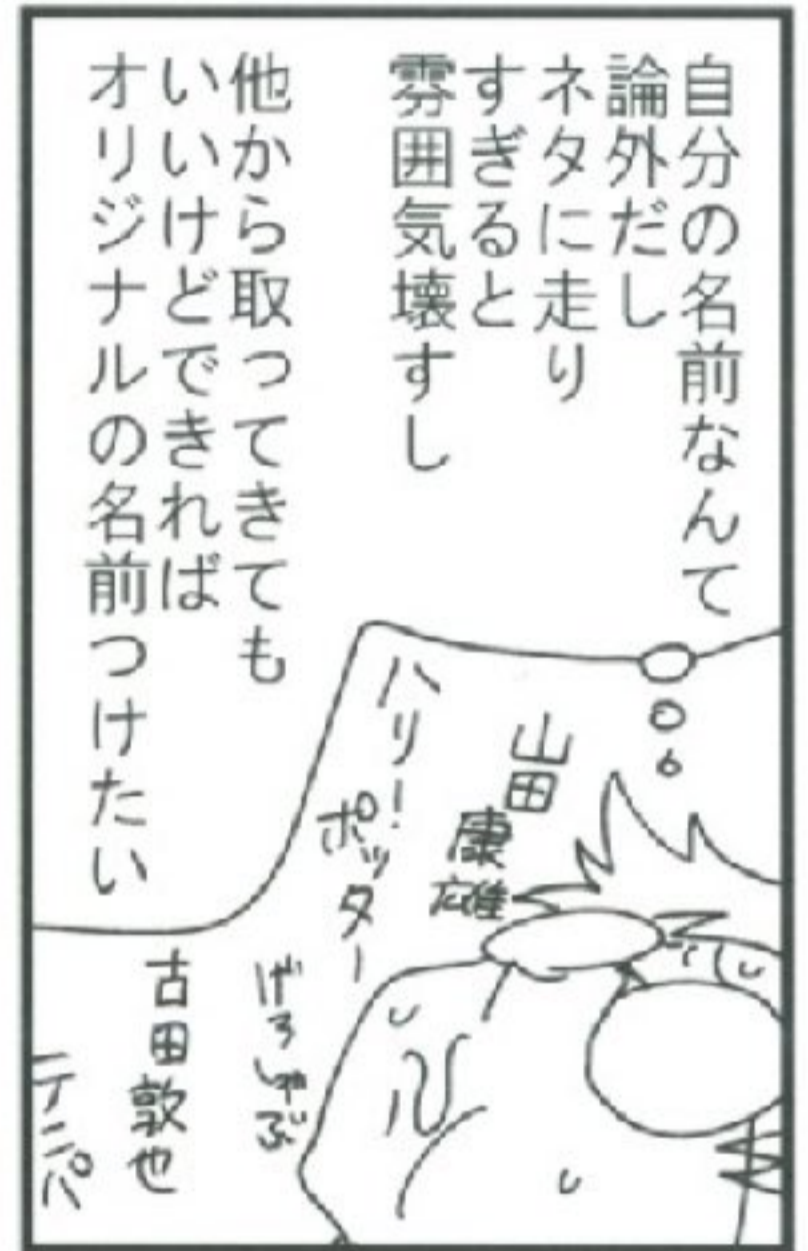 自分の名前なんて
論外だし
ネタに走り
すぎると
雰囲気壊すし
他から取ってきても
いいけどできれば
オリジナルの名前つけたい
山田
康雄
ハリー
ポッター
げろしゃぶ
古田敦也
テンパ